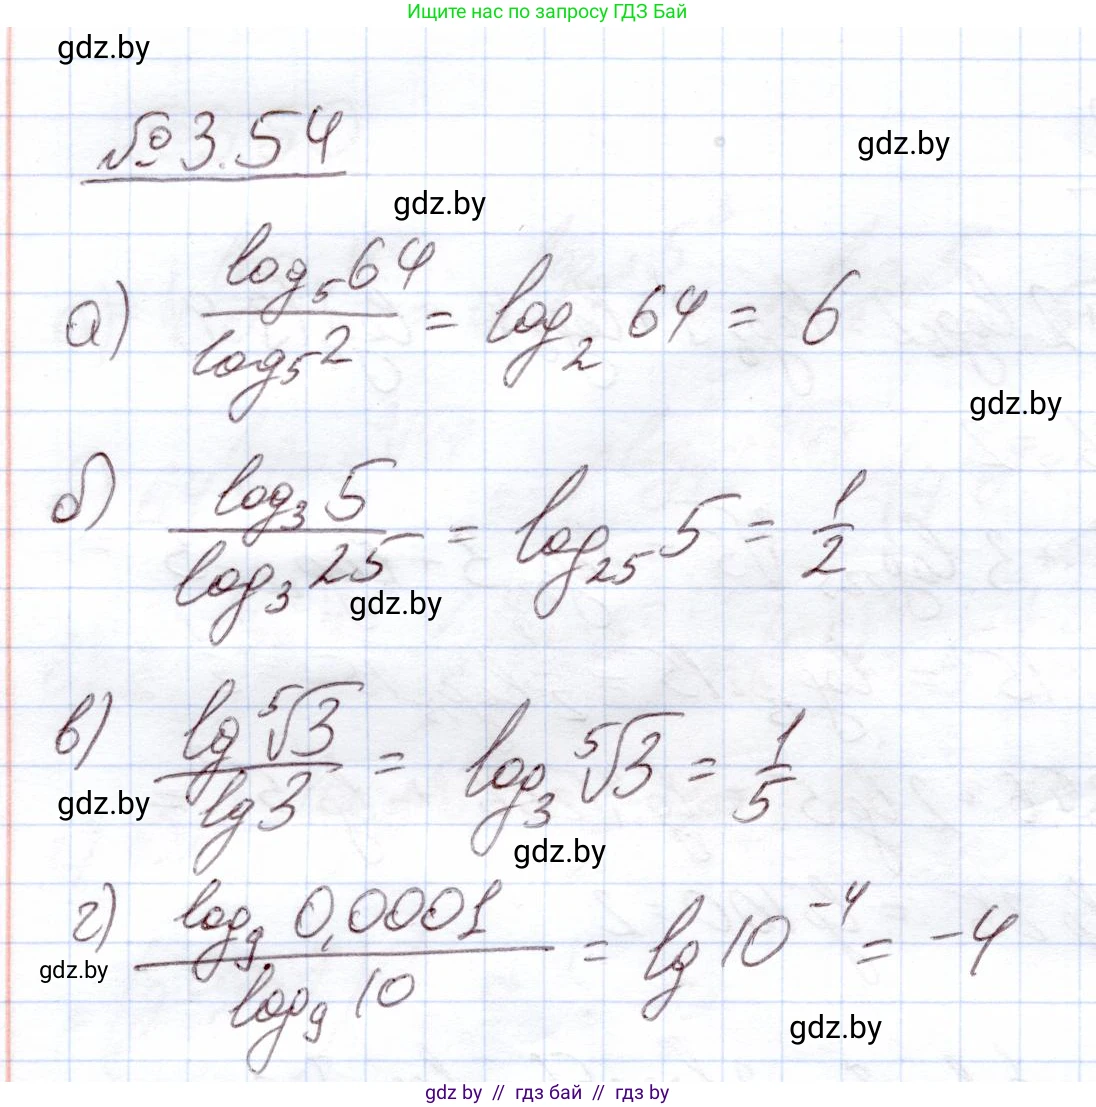 Ищите нас по запросу ГДЗ Бай
gdz.by
№ 3.54
gdz.by
gdz.by
а) log₅64 / log₅2 = log₂ 64 = 6
gdz.by
б) log₃ 5 / log₃ 25 = log₂₅ 5 = 1/2
gdz.by
в) lg ⁵√3 / lg 3 = log₃ ⁵√3 = 1/5
gdz.by
gdz.by
г) log₉ 0,0001 / log₉ 10 = lg 10⁻⁴ = -4
gdz.by
gdz.by
gdz.by // гдз бай // гдз by